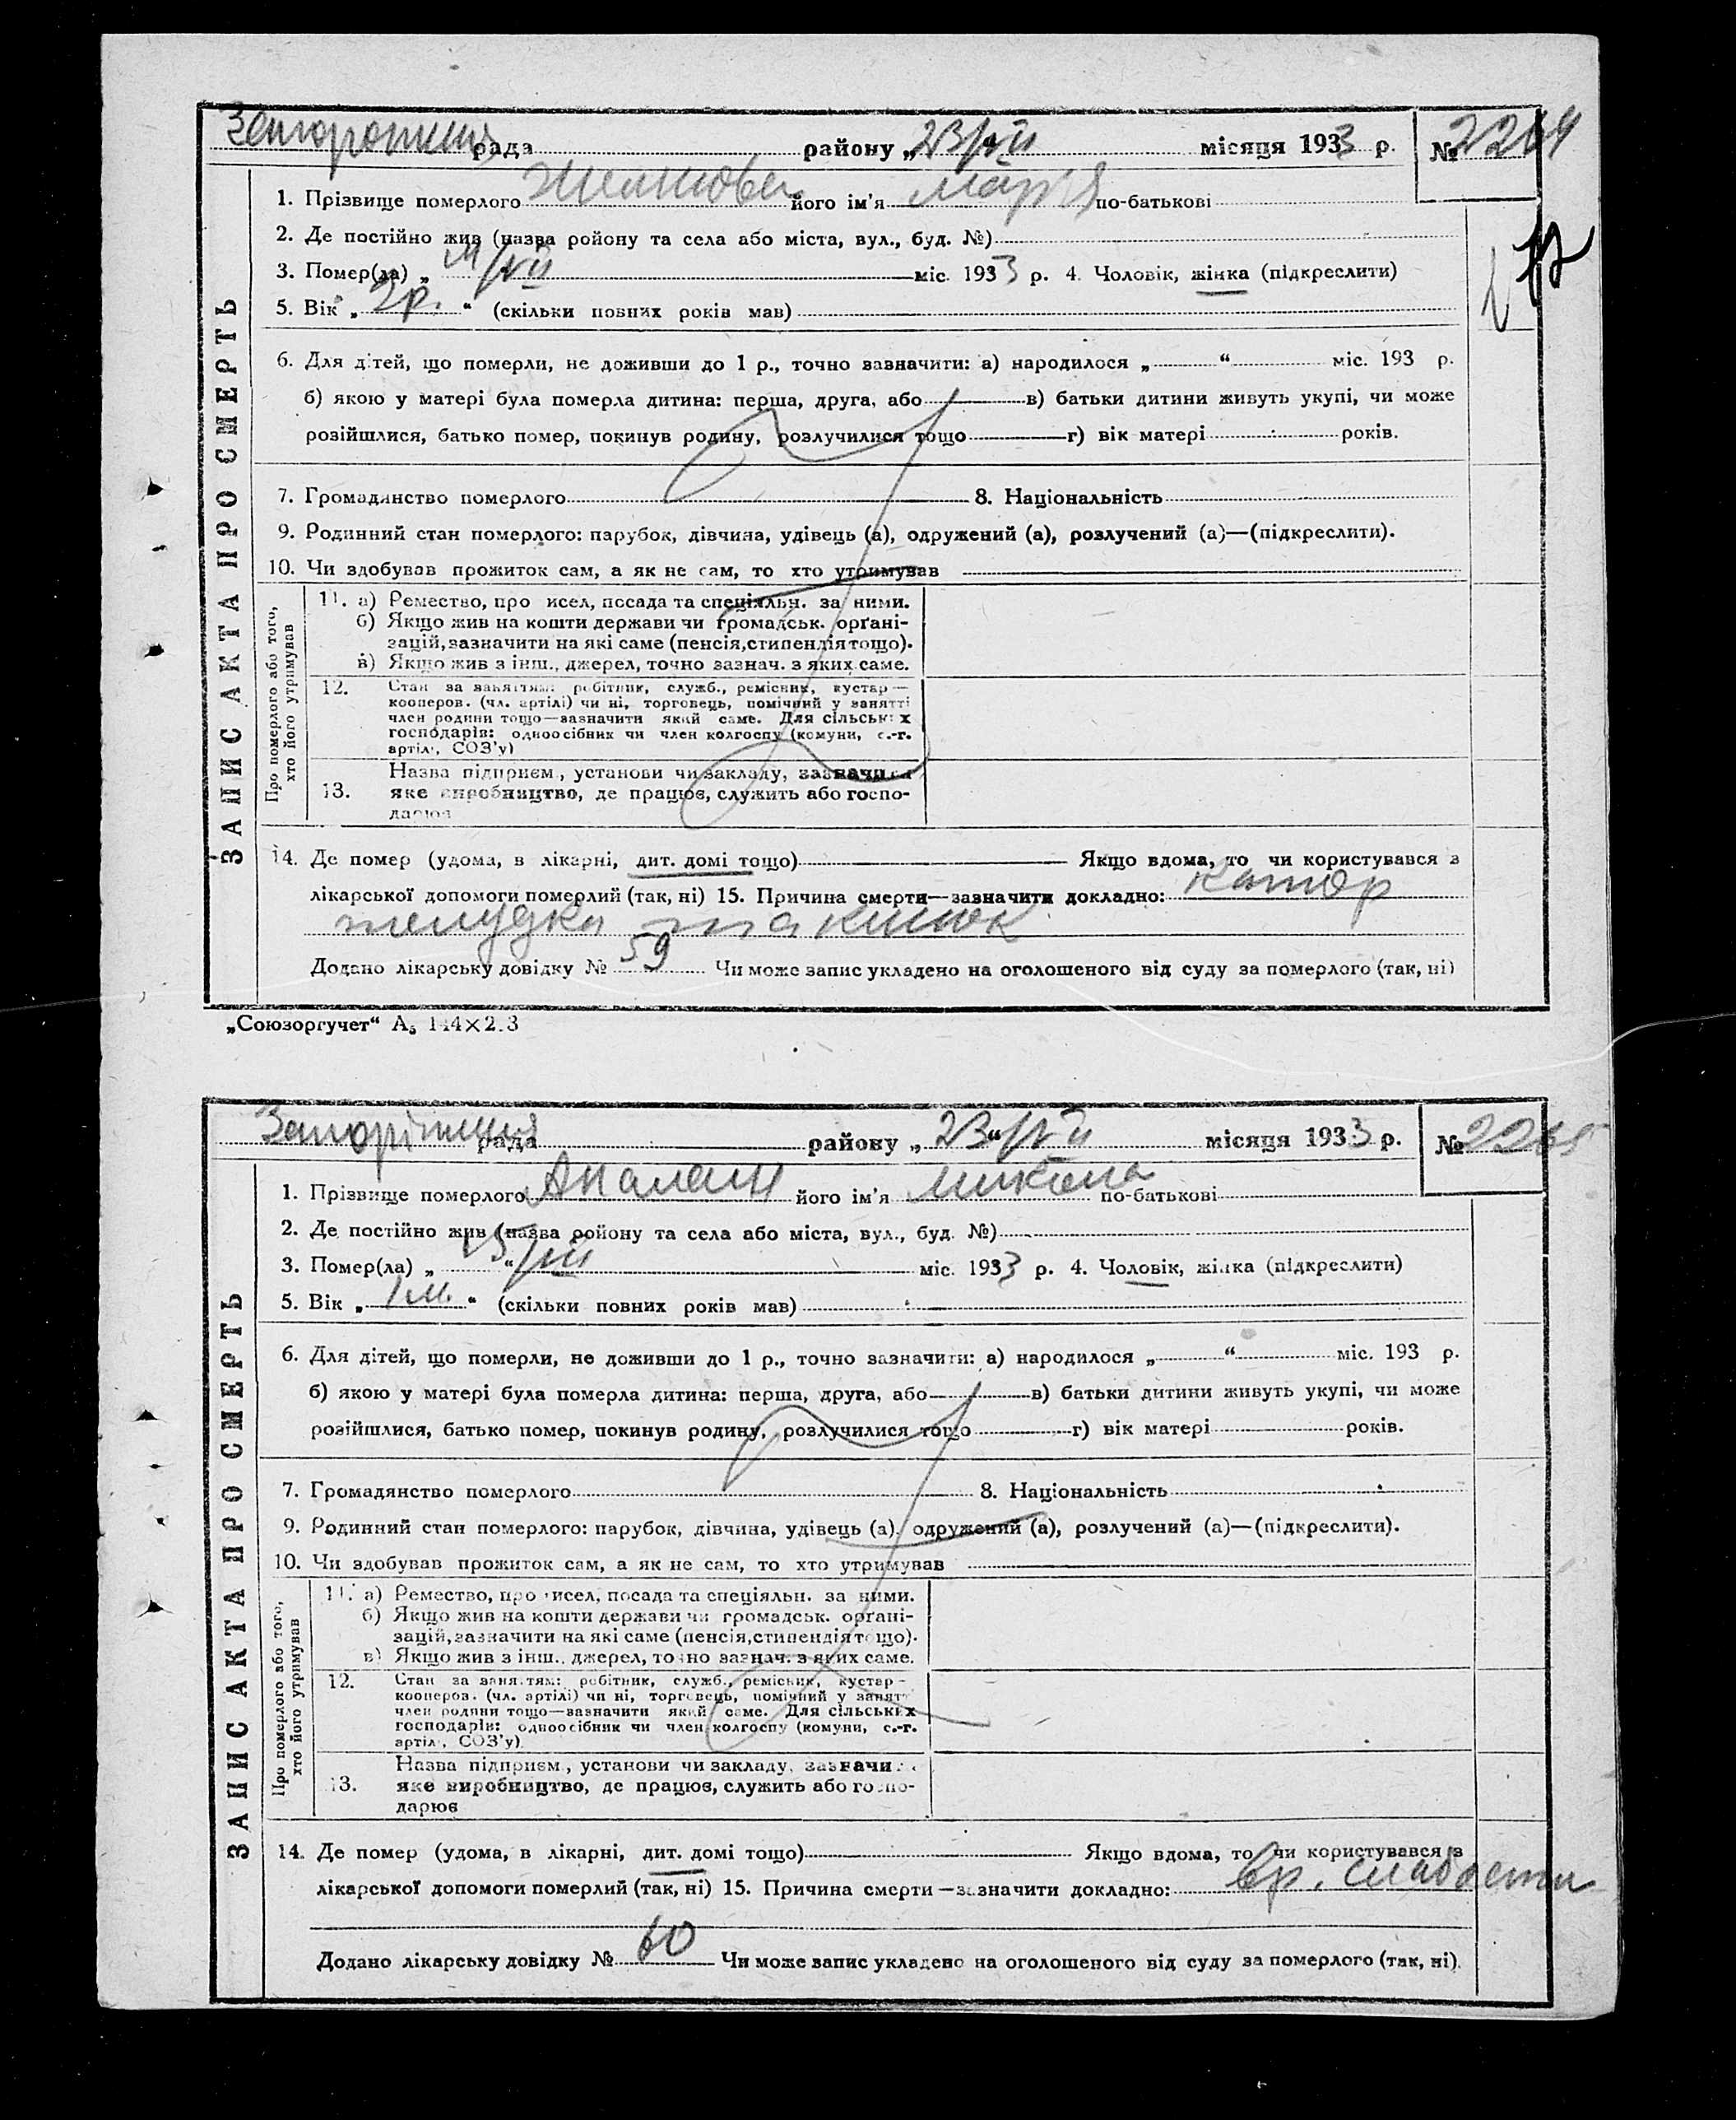 Запоріжжя рада району „23/VII місяця 1933 р. № 2264
1. Прізвище померлого його ім'я Марія по-батькові
2. Де постійно жив (назва ройону та села або міста, вул., буд. №)
3. Помер(ла) „ /VII міс. 1933 р. 4. Чоловік, жінка (підкреслити)
5. Вік „ 2р. “ (скільки повних років мав)
6. Для дітей, що померли, не доживши до 1 р., точно зазначити: а) народилося „ “ міс. 193 р.
б) якою у матері була померла дитина: перша, друга, або в) батьки дитини живуть укупі, чи може
розійшлися, батько помер, покинув родину, розлучилися тощо г) вік матері років.
7. Громадянство померлого 8. Національність
9. Родинний стан померлого: парубок, дівчина, удівець (а), одружений (а), розлучений (а)—(підкреслити).
10. Чи здобував прожиток сам, а як не сам, то хто утримував
ЗАПИС АКТА ПРО СМЕРТЬ
Про померлого або того,
хто його утримував
11. а) Ремество, про исел, посада та спеціяльн. за ними.
б) Якщо жив на кошти держави чи громадськ. орґані-
зацій, зазначити на які саме (пенсія, стипендія тощо).
в) Якщо жив з інш., джерел, точно зазнач. з яких саме.
12. Стан за заняттям: робітник, служб., ремісник, кустар—
кооперов. (чл. артілі) чи ні, торговець, помічний у занятті
член родини тощо—зазначити який саме. Для сільськ х
господарів: одноосібник чи член колгоспу (комуни, с.-г.
артіл , СОЗ'у)
Назва підприєм., установи чи закладу, зазначити
13. яке виробництво, де працює, служить або госпо-
дарює
14. Де помер (удома, в лікарні, дит. домі тощо) Якщо вдома, то чи користувався з
лікарської допомоги померлий (так, ні) 15. Причина смерти—зазначити докладно: катар
желудка та кишок
Додано лікарську довідку № 59 Чи може запис укладено на оголошеного від суду за померлого (так, ні)
„Союзоргучет“ А5 144×2.3
Запоріжжя рада району „ 23“/VII місяця 1933 р. № 2265
1. Прізвище померлого його ім'я Микола по-батькові
2. Де постійно жив (назва ройону та села або міста, вул., буд. №)
3. Помер(ла) „ “/VII міс. 1933 р. 4. Чоловік, жінка (підкреслити)
5. Вік „ 1 м. “ (скільки повних років мав)
6. Для дітей, що померли, не доживши до 1 р., точно зазначити: а) народилося „ “ міс. 193 р.
б) якою у матері була померла дитина: перша, друга, або в) батьки дитини живуть укупі, чи може
розійшлися, батько помер, покинув родину, розлучилися тощо г) вік матері років.
7. Громадянство померлого 8. Національність
9. Родинний стан померлого: парубок, дівчина, удівець (а), одружений (а), розлучений (а)—(підкреслити).
10. Чи здобував прожиток сам, а як не сам, то хто утримував
ЗАПИС АКТА ПРО СМЕРТЬ
Про померлого або того,
хто його утримував
11. а) Ремество, про исел, посада та спеціяльн. за ними.
б) Якщо жив на кошти держави чи громадськ. орґані-
зацій, зазначити на які саме (пенсія, стипендія тощо).
в) Якщо жив з інш., джерел, точно зазнач. з яких саме.
12. Стан за заняттям: робітник, служб., ремісник, кустар—
кооперов. (чл. артілі) чи ні, торговець, помічний у занятт
член родини тощо—зазначити який саме. Для сільських
господарів: одноосібник чи член колгоспу (комуни, с.-г.
артіл , СОЗ'у)
Назва підприєм., установи чи закладу, зазначи
13. яке виробництво, де працює, служить або госпо-
дарює
14. Де помер (удома, в лікарні, дит. домі тощо) Якщо вдома, то чи користувався з
лікарської допомоги померлий (так, ні) 15. Причина смерти—зазначити докладно: вр. слабости
Додано лікарську довідку № 60 Чи може запис укладено на оголошеного від суду за померлого (так, ні)